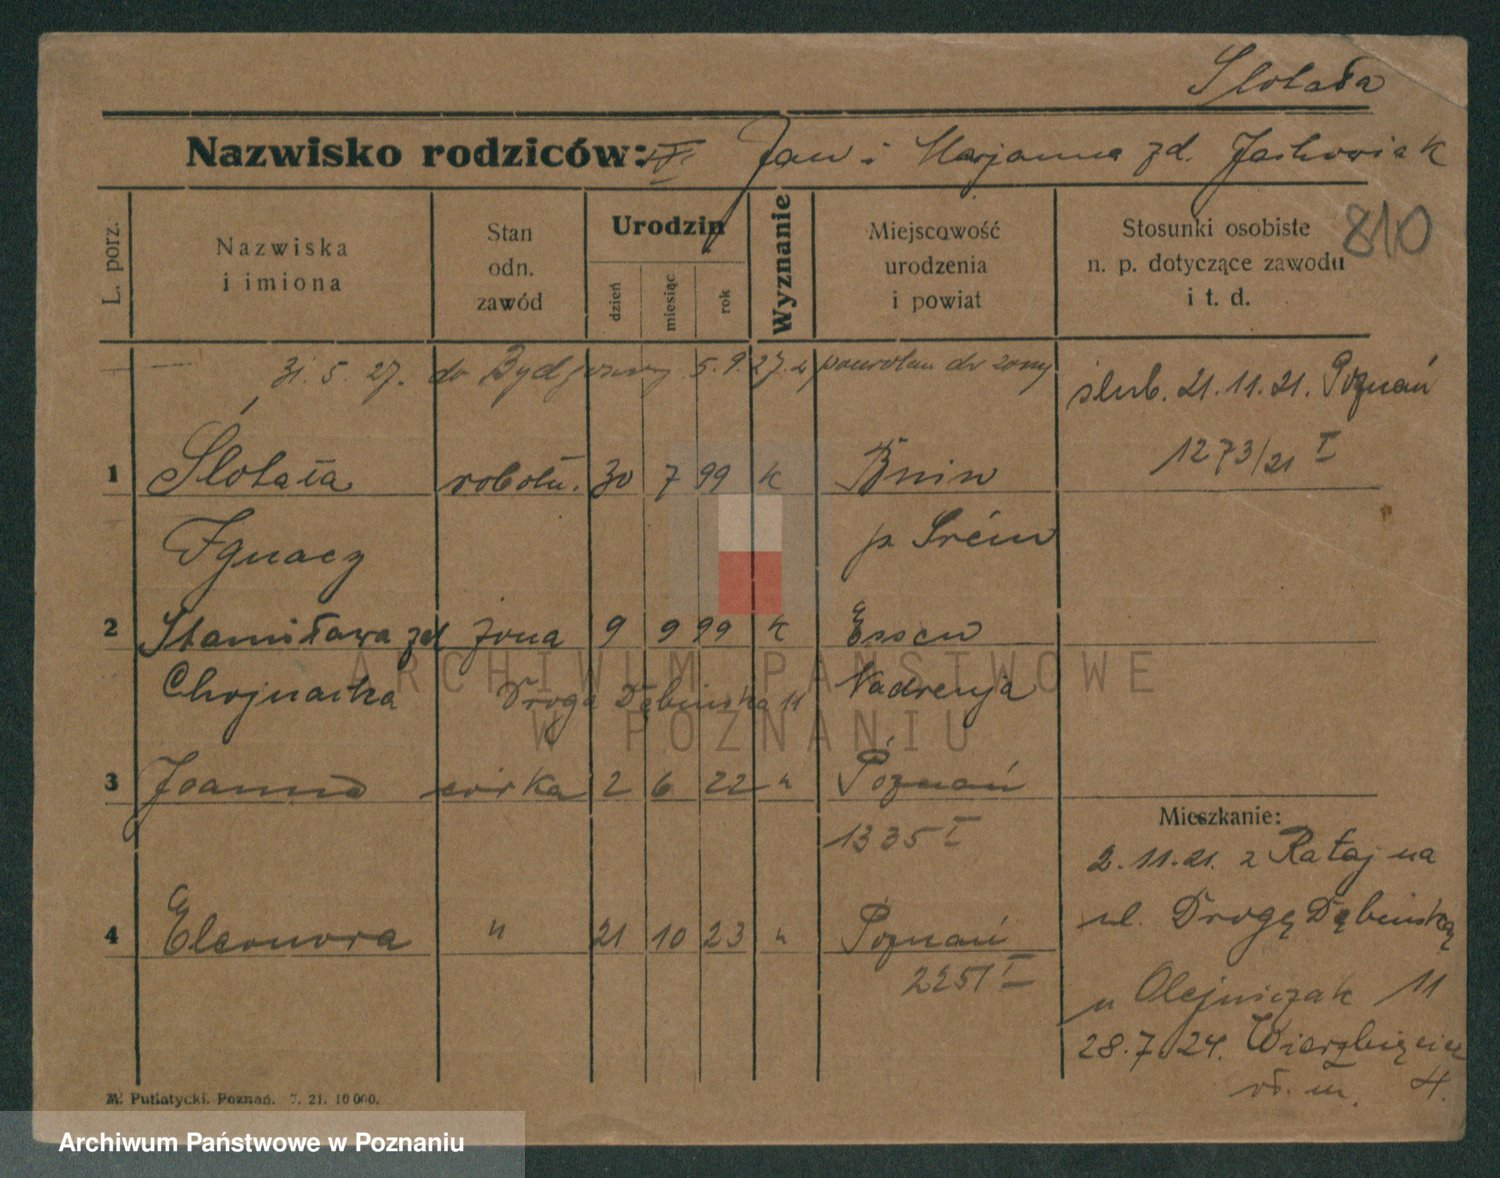 Slotała
Nazwisko rodziców: Jan i Marjanna zd. Jachowiak
L. porz.
Nazwiska
i imiona
Stan
odn.
zawód
Urodzin
dzień
miesiąc
rok
Wyznanie
Miejscowość
urodzenia
i powiat
Stosunki osobiste
n. p. dotyczące zawodu
i t. d.
810
31. 5. 27. do Bydgoszczy 5. 9. 27. powrotem do żony
ślub. 21. 11. 21. Poznań
1273/21 I
1 Slotała robotn. 30 7 99 k Bnin
Ignacy p. Śrem
2 Stanisława zd żona 9 9 99 k Essen
Chojnacka Droga Dębinska 11 Nadrenja
3 Joanna córka 2 6 22 " Poznań
1335 I
4 Eleonora " 21 10 23 " Poznań
2251 I
Mieszkanie:
2. 11. 21. z Rataj na
ul. Drogę Dębinską
u Olejniczak 11
28. 7. 24. Wierzbięcice
4.
M. Putiatycki. Poznań. 7. 21. 10 000.
ARCHIWUM PAŃSTWOWE
W POZNANIU
Archiwum Państwowe w Poznaniu